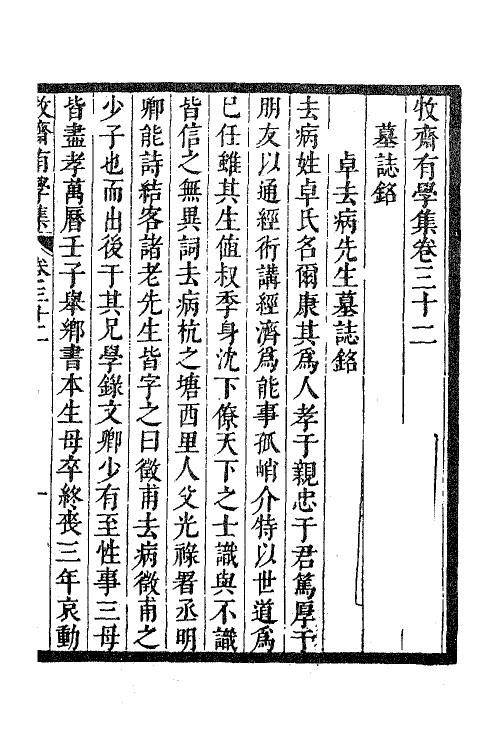 牧齋有學集卷三十二
墓誌銘
卓去病先生墓誌銘
去病姓卓氏名爾康其爲人孝于親忠于君篤厚于
朋友以通經術講經濟爲能事孤峭介特以世道爲
已任雖其生值叔季身沈下僚天下之士識與不識
皆信之無異詞去病杭之塘西里人父光祿署丞明
卿能詩結客諸老先生皆字之曰徵甫去病徵甫之
少子也而出後于其兄學錄文卿少有至性事三母
皆盡孝萬曆壬子舉鄉書本生母卒終喪三年哀動
牧齋有學集 卷三十二 一